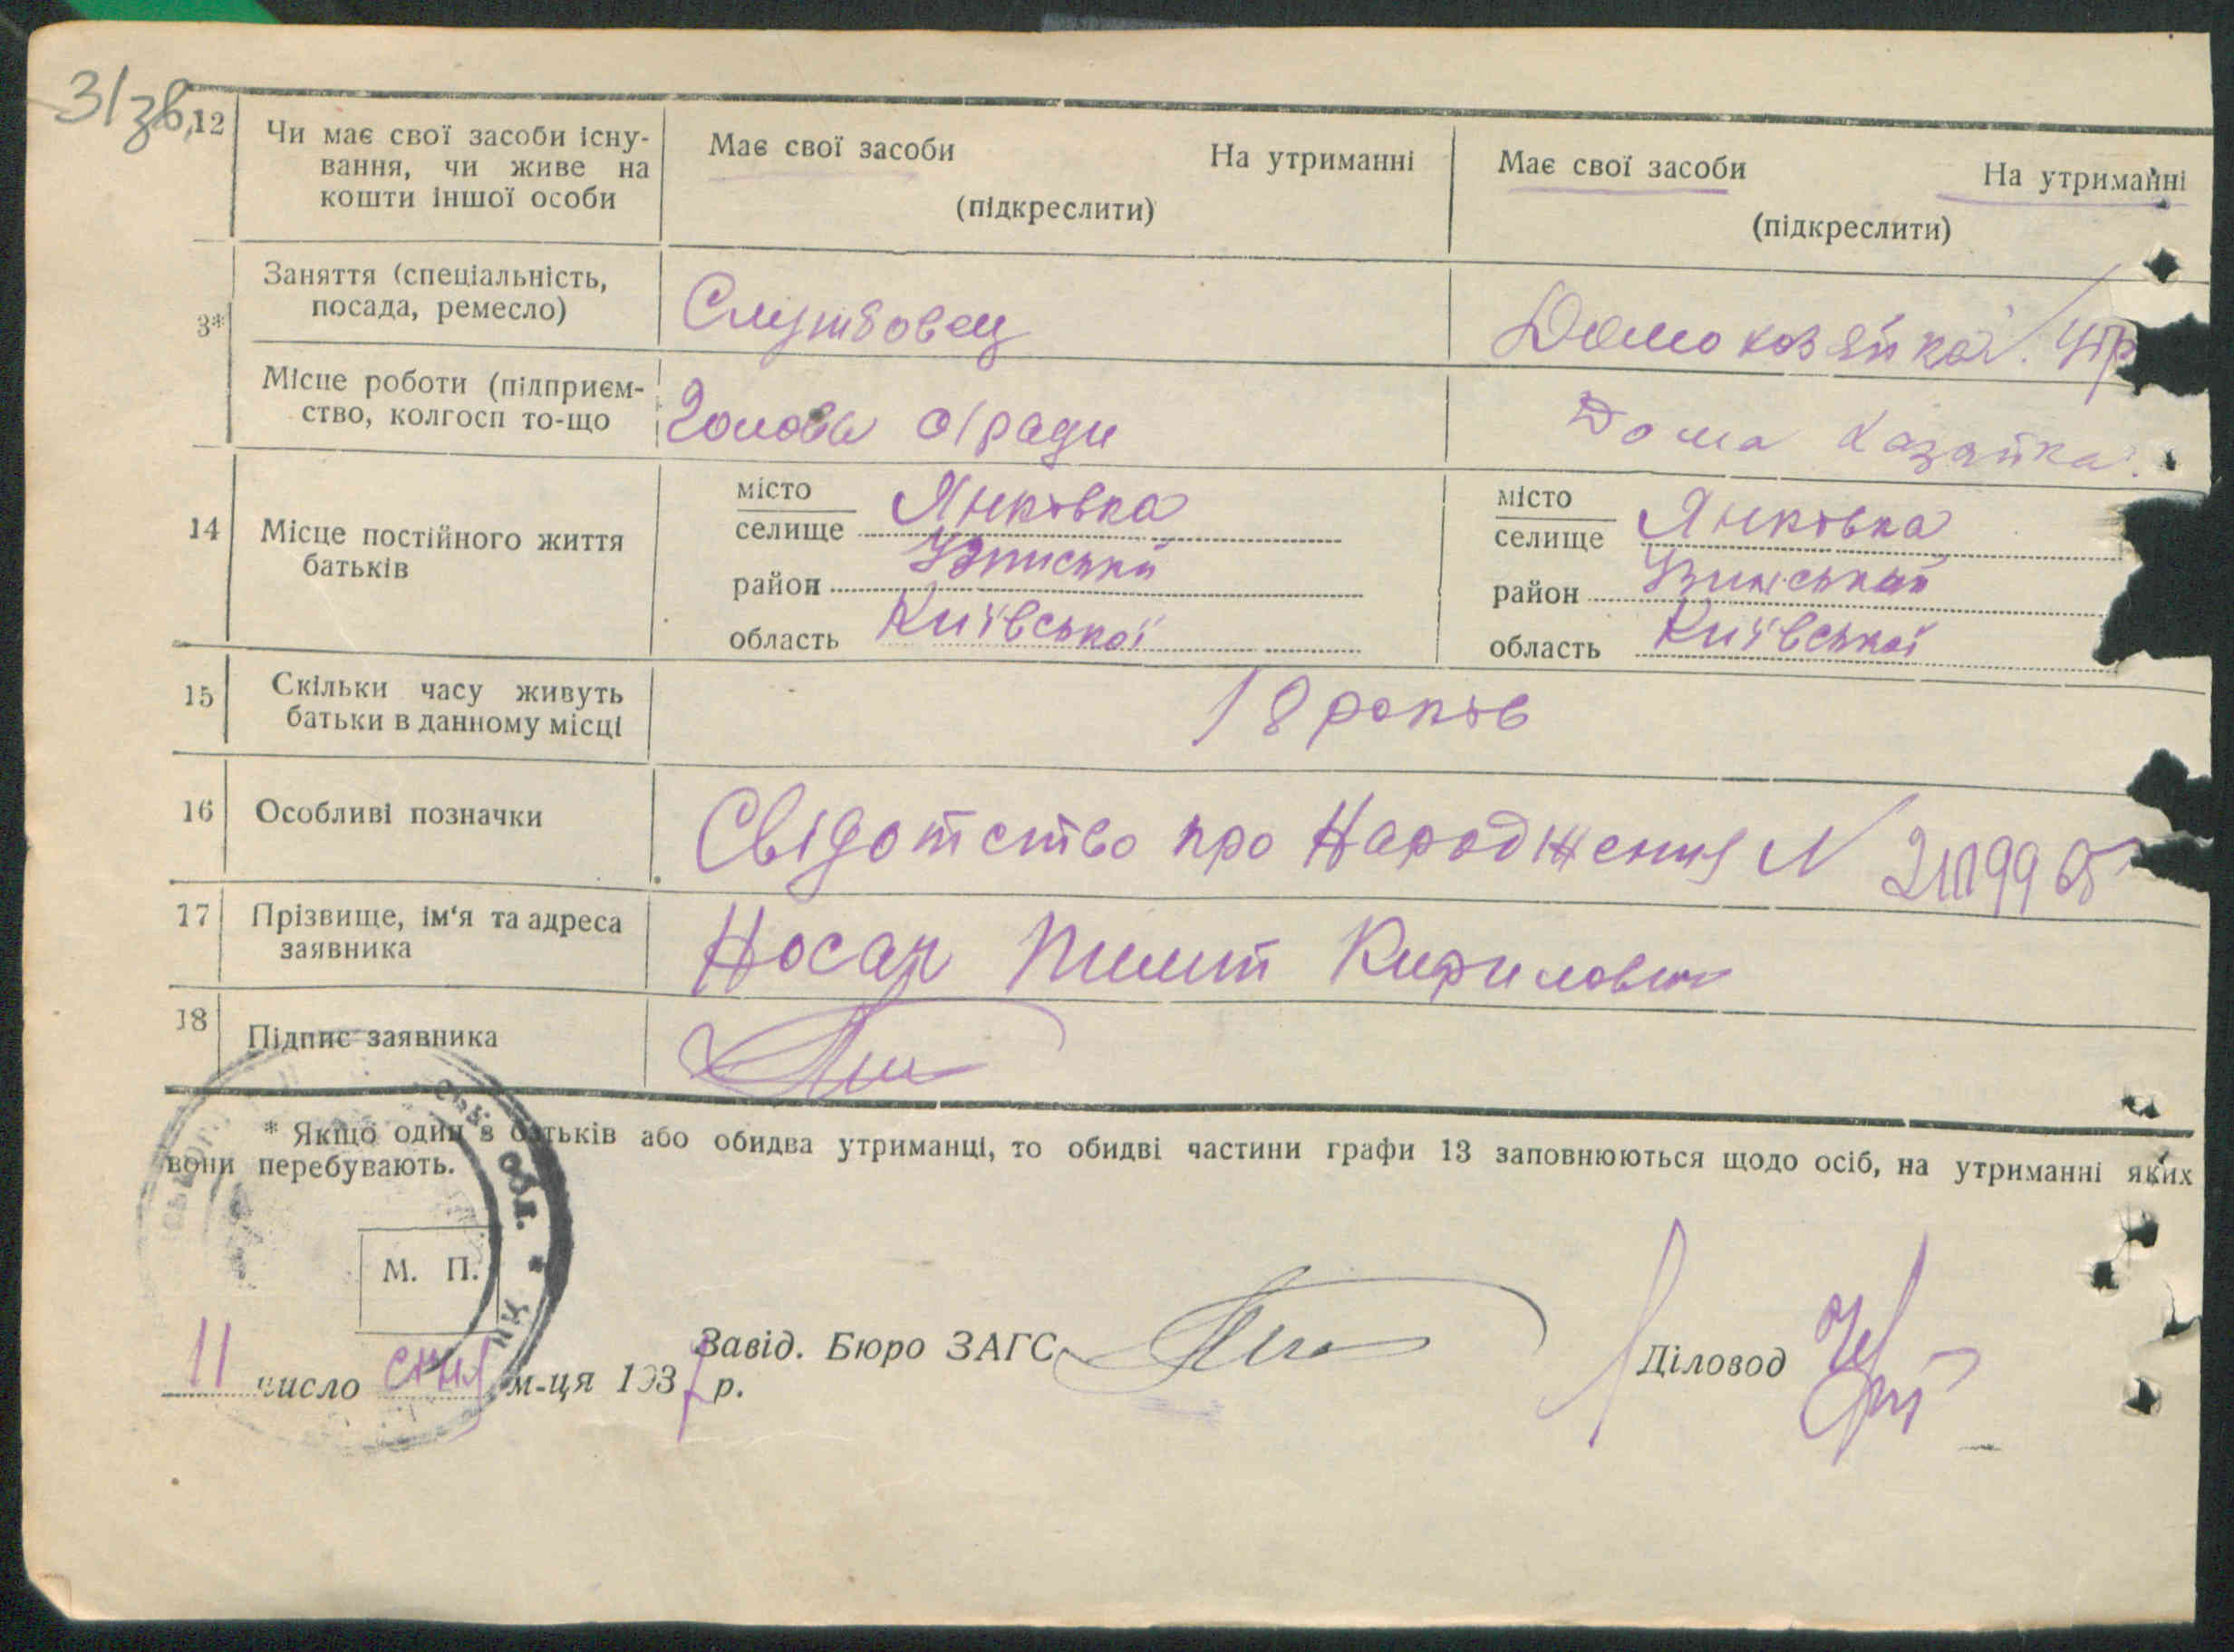 31зв.
12 Чи має свої засоби існу-
вання, чи живе на
кошти іншої особи
Має свої засоби На утриманні
(підкреслити)
Має свої засоби На утриманні
(підкреслити)
3*
Заняття (спеціальність,
посада, ремесло)
Службовец
Домохозяйка. Утр
Місце роботи (підприєм-
ство, колгосп то-що
Голова с/ради
Дома Хазяйка.
14 Місце постійного життя
батьків
місто
селище Янківка
район
область Київської
місто
селище Янківка
район
область Київської
15 Скільки часу живуть
батьки в данному місці
18 років
16 Особливі позначки
Свідотство про Народження N
17 Прізвище, ім‘я та адреса
заявника
Носар Пилип Кирилович
18 Підпис заявника
* Якщо один з батьків або обидва утриманці, то обидві частини графи 13 заповнюються щодо осіб, на утриманні яких
вони перебувають.
обл. *
М. П.
11 число січня м-ця 1937 р.
Завід. Бюро ЗАГС
Діловод